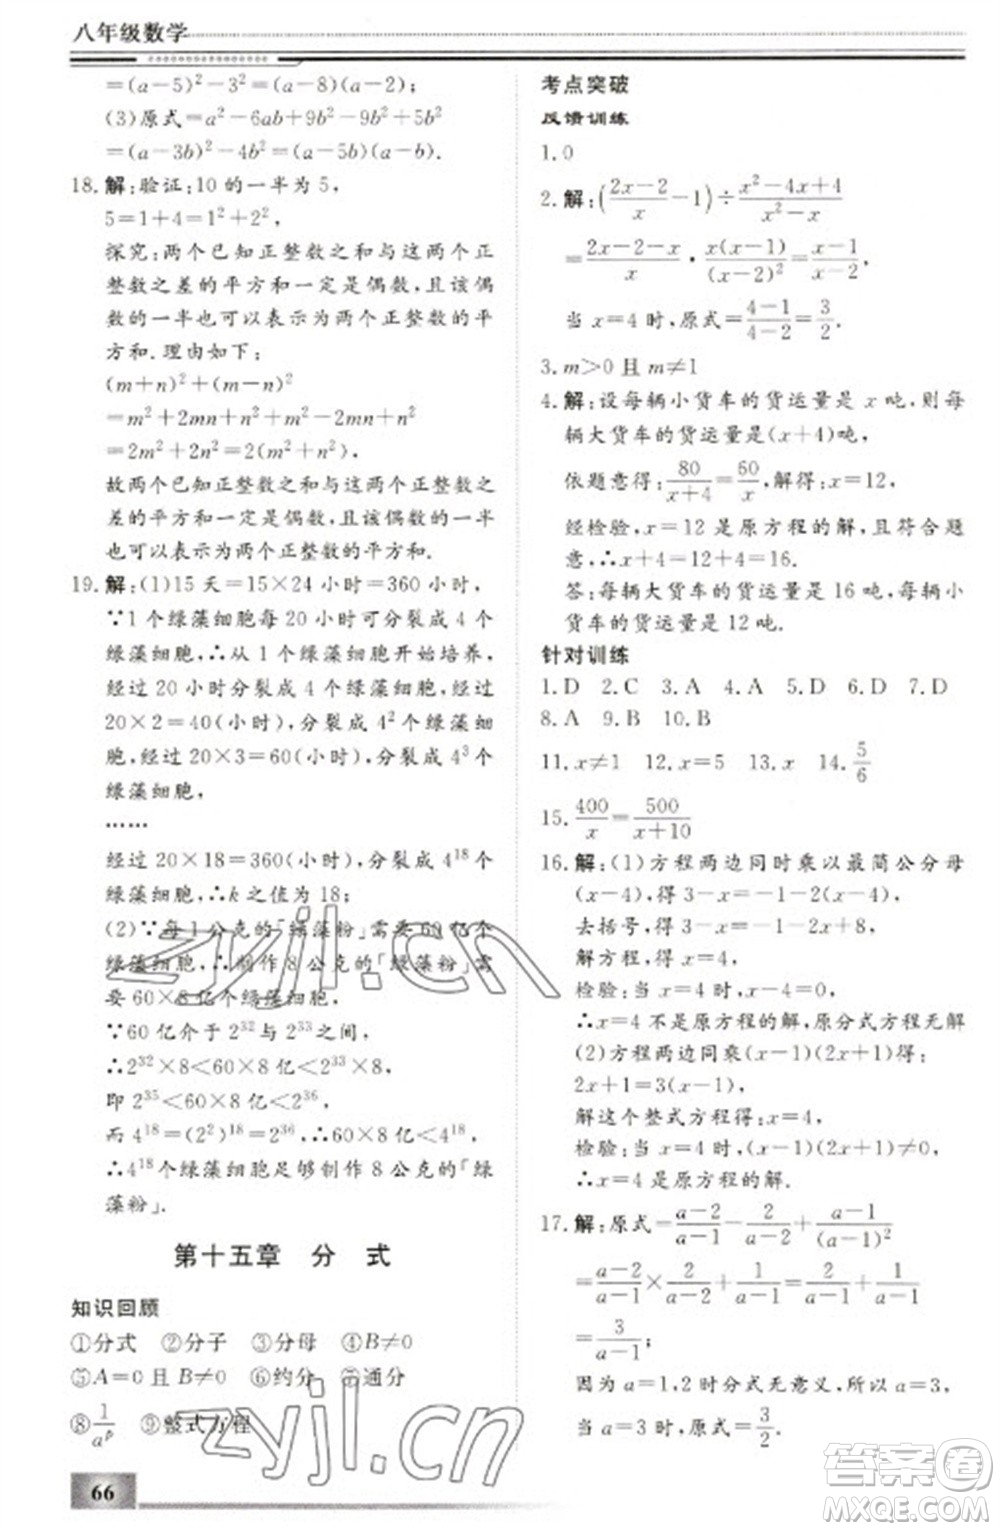 八年级数学
=(a-5)²-3²=(a-8)(a-2);
(3)原式=a²-6ab+9b²-4b²
=(a-3b)²-4b²=(a-5b)(a-b).
18.解:验证:10 的一半为 5,
5=1+4=1²+2²,
探究:两个已知正整数之和与这两个正
整数之差的平方和一定是偶数,且该偶
数的一半也可以表示为两个正整数的平
方和.理由如下:
(m+n)²+(m-n)²
=m²+2mn+n²+m²-2mn+n²
=2m²+2n²=2(m²+n²)
故两个已知正整数之和与这两个正整数之
差的平方和一定是偶数,且该偶数的一半
也可以表示为两个正整数的平方和.
19.解:(1)15 天=15×24 小时=360 小时,
∵1 个绿藻细胞每 20 小时可分裂成 4 个
绿藻细胞,∴从 1 个绿藻细胞开始培养,
经过 20 小时分裂成 4 个绿藻细胞,经过
20×2=40(小时),分裂成 4² 个绿藻细
胞,经过 20×3=60(小时),分裂成 4³ 个
绿藻细胞,
……
经过 20×18=360(小时),分裂成 4¹⁸ 个
绿藻细胞,∴k 之值为 18;
(2)∵每 1 公克的「绿藻粉」需要 60 亿个
绿藻细胞,∴制作 8 公克的「绿藻粉」需
要 60×8 亿个绿藻细胞.
∵60 亿介于 2³² 与 2³³ 之间,
∴2³²×8<60×8 亿<2³³×8,
即 2³⁵<60×8 亿<2³⁶,
而 4¹⁸=(2²)¹⁸=2³⁶,∴60×8 亿<4¹⁸,
∴4¹⁸ 个绿藻细胞足够制作 8 公克的「绿
藻粉」.
第十五章 分 式
知识回顾
①分式 ②分子 ③分母 ④B≠0
⑤A=0 且 B≠0 ⑥约分 ⑦通分
⑧1/aᵖ ⑨整式方程
66
考点突破
反馈训练
1.0
2.解:((2x-2)/x-1)÷(x²-4x+4)/(x²-x)
=(2x-2-x)/x·x(x-1)/(x-2)²=(x-1)/(x-2),
当 x=4 时,原式=(4-1)/(4-2)=3/2.
3.m>0 且 m≠1
4.解:设每辆小货车的货运量是 x 吨,则每
辆大货车的货运量是(x+4)吨,
依题意得:80/(x+4)=60/x,解得:x=12,
经检验,x=12 是原方程的解,且符合题
意,∴x+4=12+4=16.
答:每辆大货车的货运量是 16 吨,每辆小
货车的货运量是 12 吨.
针对训练
1.D 2.C 3.A 4.A 5.D 6.D 7.D
8.A 9.B 10.B
11.x≠1 12.x=5 13.x 14.5/6
15.400/x=500/(x+10)
16.解:(1)方程两边同时乘以最简公分母
(x-4),得 3-x=-1-2(x-4),
去括号,得 3-x=-1-2x+8,
解方程,得 x=4,
检验:当 x=4 时,x-4=0,
∴x=4 不是原方程的解,原分式方程无解
(2)方程两边同乘(x-1)(x+2)得:
2x+1=3(x-1),
解这个整式方程得:x=4,
检验:当 x=4 时,(x-1)(x+2)≠0,
∴x=4 是原方程的解.
17.解:原式=(a-2)/(a-1)-2/(a-2)+(a-1)/(a-1)²
=(a-2)/(a-1)×2/(a-2)+1/(a-1)=2/(a-1)+1/(a-1)
=3/(a-1);
因为 a=1,2 时分式无意义,所以 a=3,
当 a=3 时,原式=3/2.
zyjl.cn
zyjl.cn
答案圈
MXQE.COM